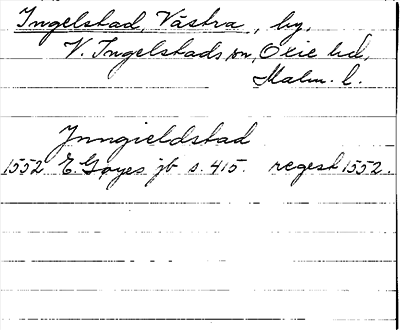 Ingelstad, Västra, by,
V. Ingelstads sn, Oxie hd,
Malm. l.
Jnngieldstad
1552 E. Gøyes jb s. 415. regest 1552.